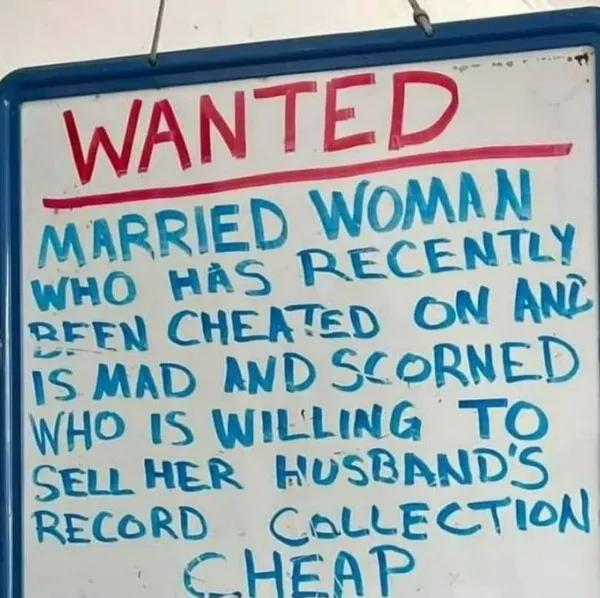 WANTED
MARRIED WOMAN
WHO HAS RECENTLY
BEEN CHEATED ON AND
IS MAD AND SCORNED
WHO IS WILLING TO
SELL HER HUSBAND'S
RECORD COLLECTION
CHEAP